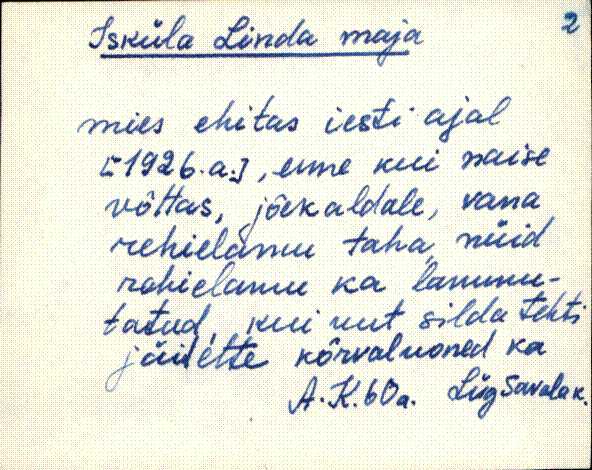 Isküla Linda maja
2
mies ehitas iesti ajal
[1926.a.], enne kui naise
võttas, jõekaldale, vana
rehielamu taha, nüid
rehielamu ka lammu-
tatud, kui uut silda tehti
jäid ette kõrvaluoned ka
A.K. 60a. Lüg Savalak.